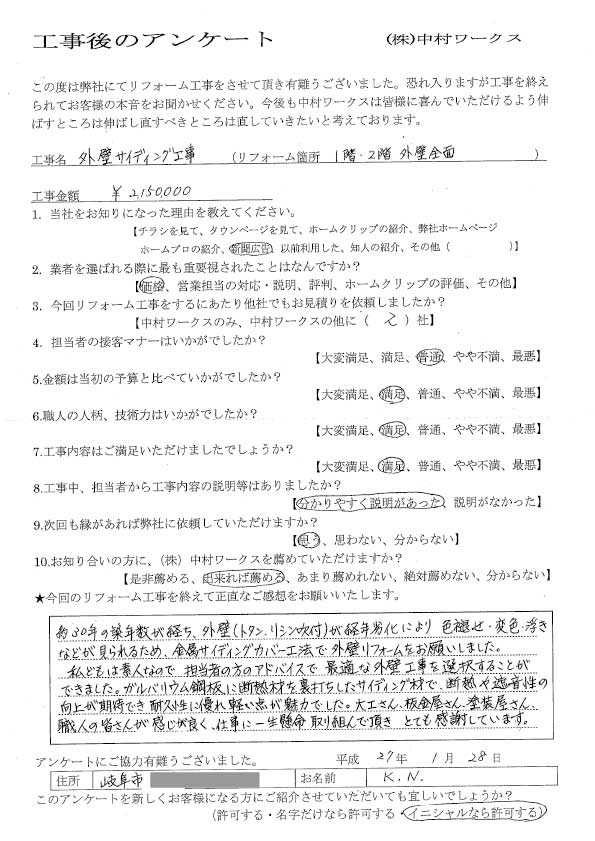 工事後のアンケート　(株)中村ワークス
この度は弊社にてリフォーム工事をさせて頂き有難うございました。恐れ入りますが工事を終え
られてお客様の本音をお聞かせください。今後も中村ワークスは皆様に喜んでいただけるよう伸
ばすところは伸ばし直すべきところは直していきたいと考えております。
工事名　外壁サイディング工事　(リフォーム箇所　1階・2階 外壁全面　)
工事金額　¥2,150,000
1. 当社をお知りになった理由を教えてください。
【チラシを見て、タウンページを見て、ホームクリップの紹介、弊社ホームページ
ホームプロの紹介、新聞広告、以前利用した、知人の紹介、その他（　）】
2. 業者を選ばれる際に最も重要視されたことはなんですか？
【価格、営業担当の対応・説明、評判、ホームクリップの評価、その他】
3. 今回リフォーム工事をするにあたり他社でもお見積りを依頼しましたか？
【中村ワークスのみ、中村ワークスの他に（ 2 ）社】
4. 担当者の接客マナーはいかがでしたか？
【大変満足、満足、普通、やや不満、最悪】
5.金額は当初の予算と比べていかがでしたか？
【大変満足、満足、普通、やや不満、最悪】
6.職人の人柄、技術力はいかがでしたか？
【大変満足、満足、普通、やや不満、最悪】
7.工事内容はご満足いただけましたでしょうか？
【大変満足、満足、普通、やや不満、最悪】
8.工事中、担当者から工事内容の説明等はありましたか？
【分かりやすく説明があった、説明がなかった】
9.次回も縁があれば弊社に依頼していただけますか？
【思う、思わない、分からない】
10.お知り合いの方に、（株）中村ワークスを薦めていただけますか？
【是非薦める、出来れば薦める、あまり薦めれない、絶対薦めない、分からない】
★今回のリフォーム工事を終えて正直なご感想をお願いいたします。
約30年の築年数が経ち、外壁(トタン、リシン吹付)が経年劣化により 色褪せ・変色・浮き
などが見られるため、金属サイディングカバー工法で外壁リフォームをお願いしました。
私どもは素人なので 担当者の方のアドバイスで 最適な外壁工事を選択することが
できました。ガルバリウム鋼板に断熱材を裏打ちしたサイディング材で、断熱や遮音性の
向上が期待でき 耐久性に優れ軽い点が魅力でした。大工さん、板金屋さん、塗装屋さん、
職人の皆さんが 感じが良く、仕事に一生懸命 取り組んで頂き とても感謝しています。
アンケートにご協力有難うございました。　平成 27年 1月 28日
住所　岐阜市　お名前　K.N.
このアンケートを新しくお客様になる方にご紹介させていただいても宜しいでしょうか？
(許可する・名字だけなら許可する・イニシャルなら許可する)